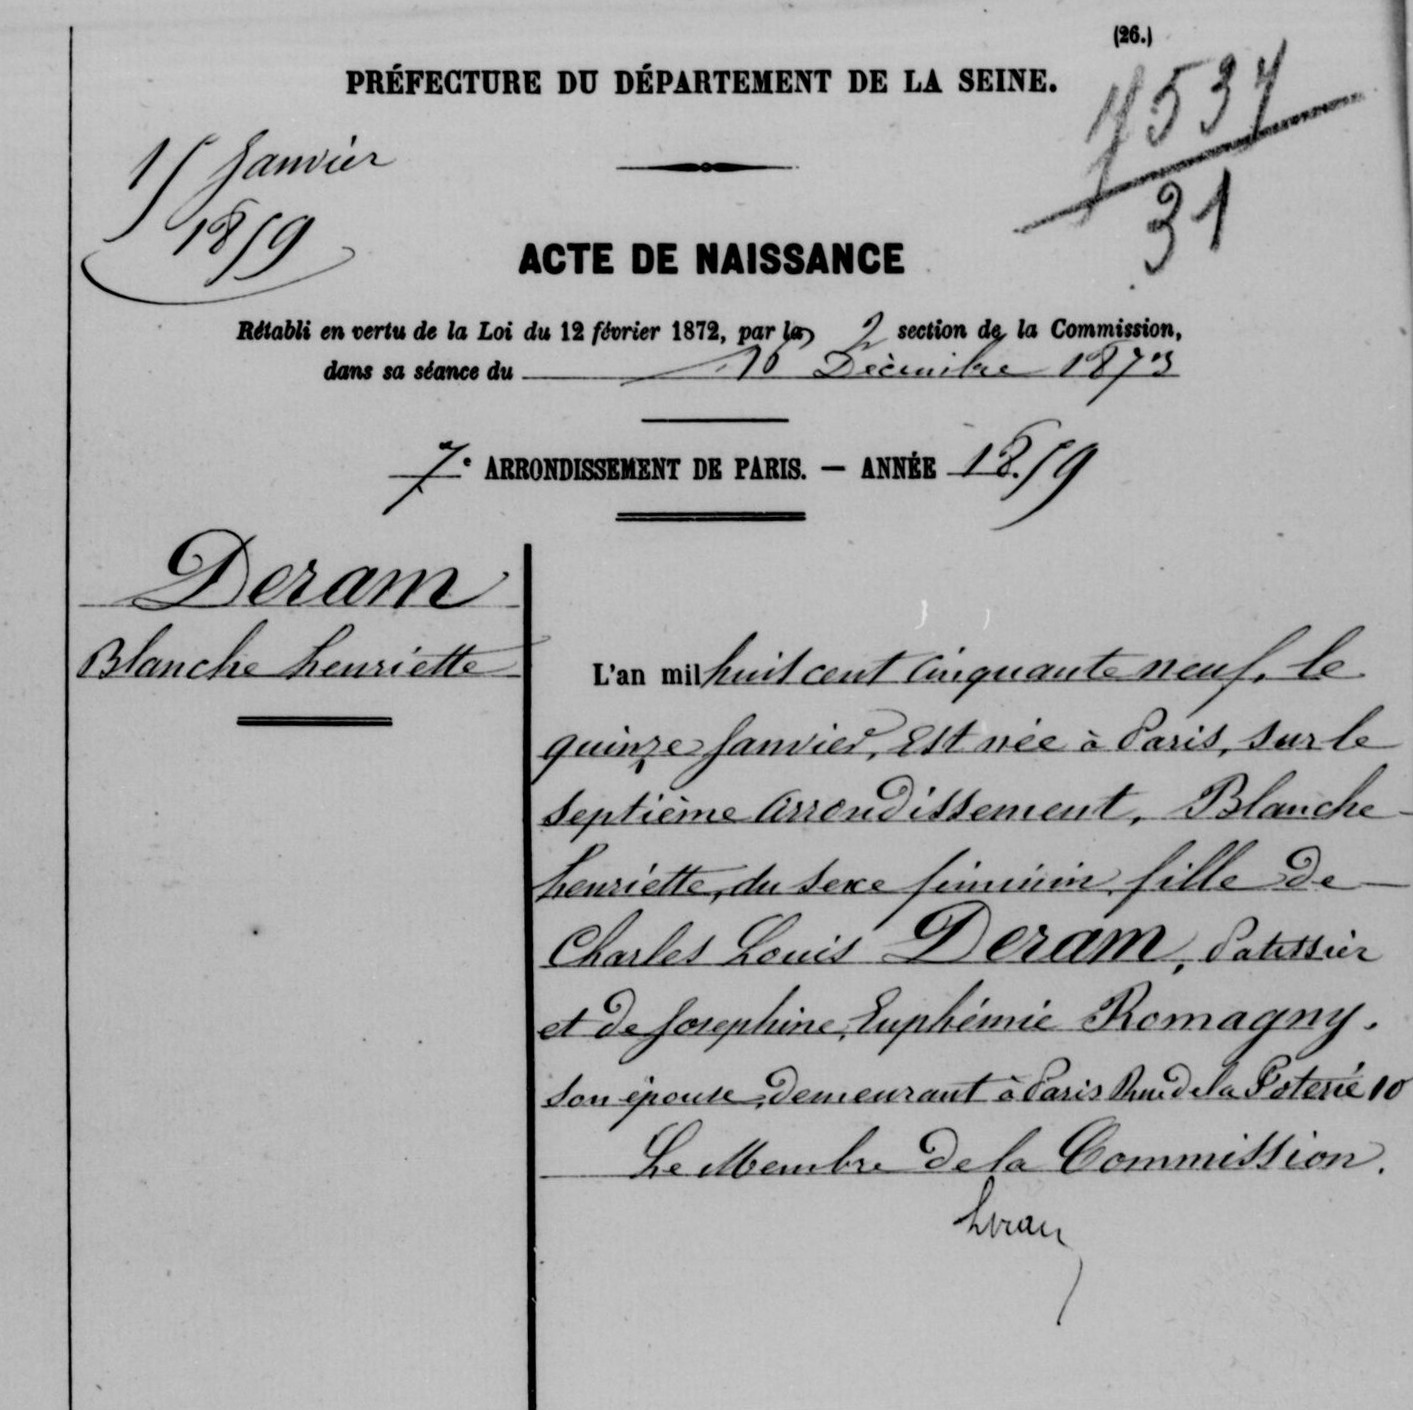 (26.)
PRÉFECTURE DU DÉPARTEMENT DE LA SEINE.
7537
31
15 Janvier
1859
ACTE DE NAISSANCE
Rétabli en vertu de la Loi du 12 février 1872, par la 2 section de la Commission,
dans sa séance du 16 Décembre 1873
7e ARRONDISSEMENT DE PARIS. — ANNÉE 1859
Deram
Blanche henriette
L'an mil huit cent cinquante neuf, le
quinze Janvier, Est née à Paris, sur le
septième arrondissement, Blanche
henriette, du sexe féminin, fille de
Charles Louis Deram, Patissier
et de Josephine, Euphémie Romagny,
son épouse, demeurant à Paris Rue de la Poterie 10
Le Membre de la Commission.